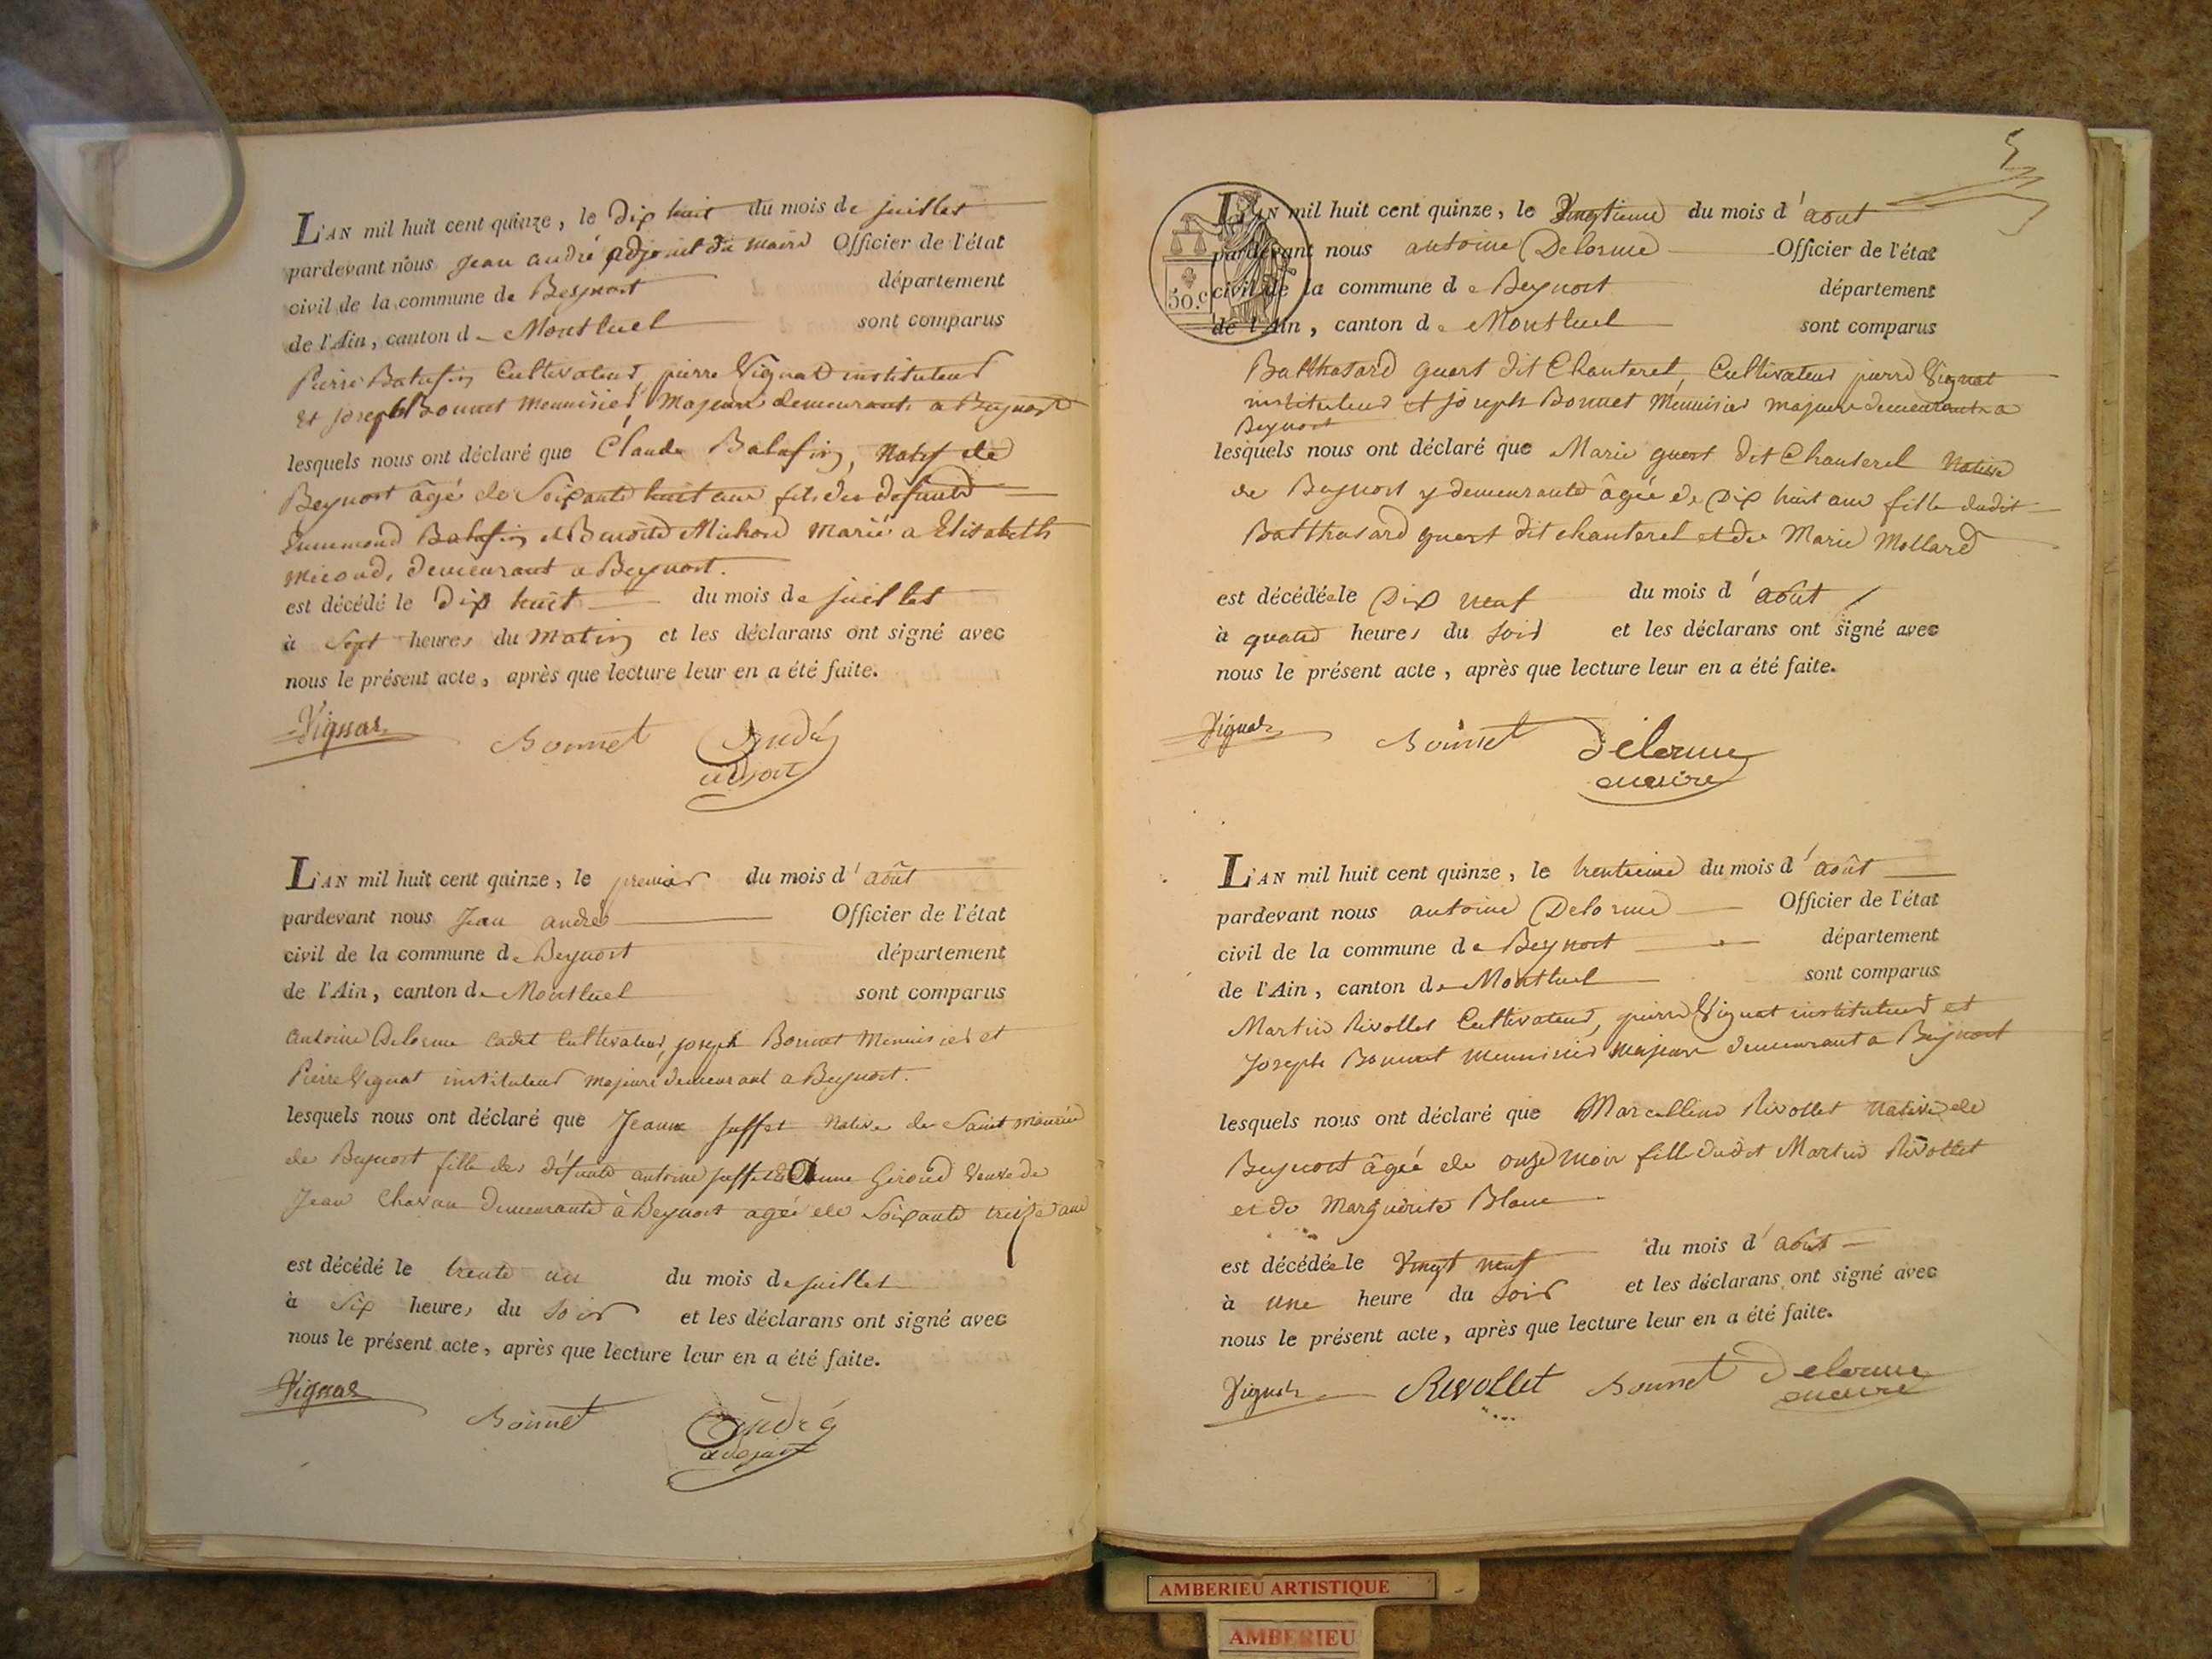 L'AN mil huit cent quinze, le Dix huit du mois de juillet
pardevant nous Jean andré adjoint du maire Officier de l'état
civil de la commune de Beynost département
de l'Ain, canton de Montluel sont comparus
Pierre Balufin Cultivateur, pierre Vignat instituteur
et joseph Bonnet Menuisier, Majeurs demeurants a Beynost
lesquels nous ont déclaré que Claude Balafin, Natif de
Beynost âgé de Soixante huit ans fils des defunts
Ennemond Balafin et Benoite Michon Marié a Elisabeth
Micoud, demeurant a Beynost.
est décédé le dix huit du mois de juillet
à Sept heures du Matin et les déclarans ont signé avec
nous le présent acte, après que lecture leur en a été faite.
Vignat Bonnet André
adjoint
L'AN mil huit cent quinze, le premier du mois d'août
pardevant nous Jean andré Officier de l'état
civil de la commune de Beynost département
de l'Ain, canton de Montluel sont comparus
antoine Delorme cadet Cultivateur, joseph Bonnet Menuisier et
Pierre Vignat instituteur majeurs demeurant a Beynost.
lesquels nous ont déclaré que Jeanne juffet Native de Saint maurice
de Beynost fille des défunts antoine juffet et Anne Giroud Veuve de
Jean Chavan demeurante à Beynost agée de Soixante treize ans
est décédé le trente un du mois de juillet
à Six heures du soir et les déclarans ont signé avec
nous le présent acte, après que lecture leur en a été faite.
Vignat Bonnet André
adjoint
5
L'AN mil huit cent quinze, le Vingtieme du mois d'aout
pardevant nous antoine Delorme Officier de l'état
civil de la commune de Beynost département
30.c
de l'Ain, canton de Montluel sont comparus
Balthasard guert dit Chanterel, Cultivateur pierre Vignat
instituteur et joseph Bonnet Menuisier majeurs demeurants a
Beynost
lesquels nous ont déclaré que Marie guert dit Chanterel Native
de Beynost y demeurante âgée de Dix huit ans fille dudit
Balthasard guert dit chanterel et de Marie Mollard
est décédée le Dix neuf du mois d'août
à quatre heures du soir et les déclarans ont signé avec
nous le présent acte, après que lecture leur en a été faite.
Vignat Bonnet Delorme
maire
L'AN mil huit cent quinze, le trentieme du mois d'août
pardevant nous antoine Delorme Officier de l'état
civil de la commune de Beynost département
de l'Ain, canton de Montluel sont comparus
Martin Rivollet Cultivateur, pierre Vignat instituteur et
Joseph Bonnet menuisier majeurs demeurant a Beynost
lesquels nous ont déclaré que Marcelline Rivollet Native de
Beynost âgée de onze mois fille dudit Martin Rivollet
et de Marguerite Blanc
est décédée le Vingt neuf du mois d'août
à une heure du soir et les déclarans ont signé avec
nous le présent acte, après que lecture leur en a été faite.
Vignat Rivollet Bonnet Delorme
maire
AMBERIEU ARTISTIQUE
AMBERIEU